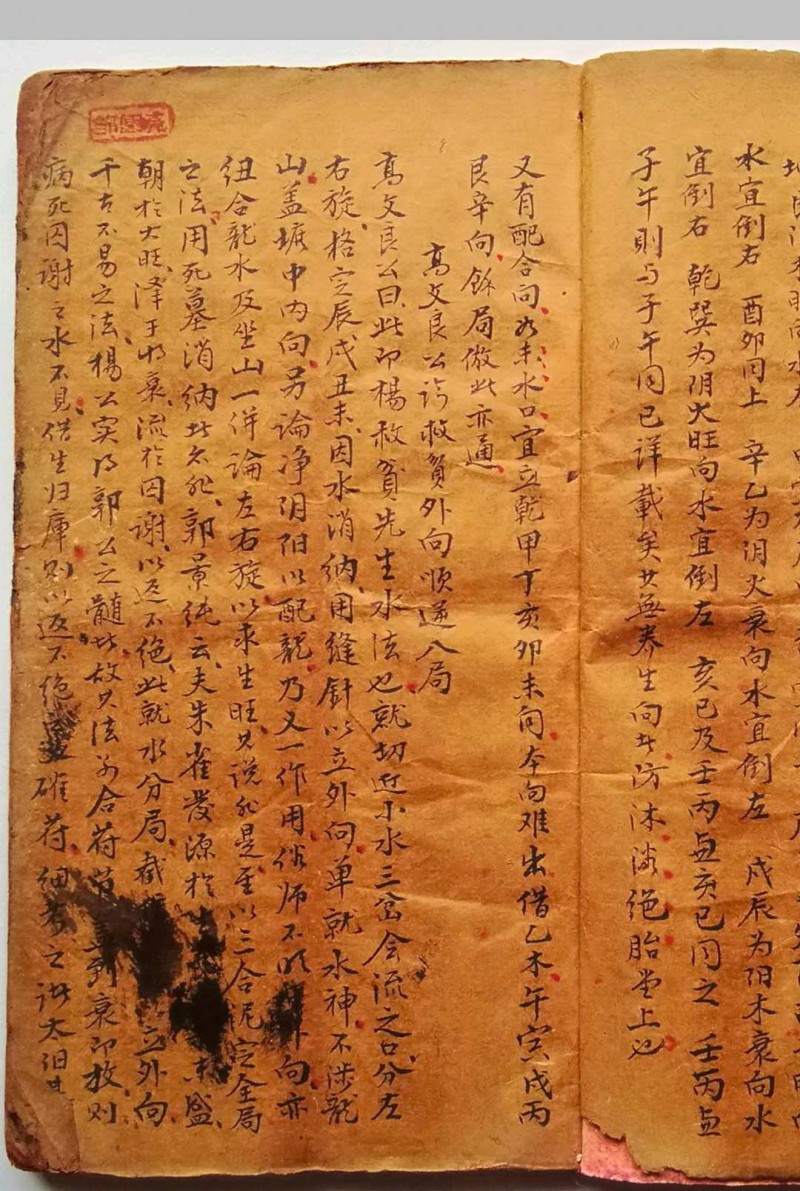 水宜倒右 酉卯同上 辛乙为阴火衰向水宜倒左 戌辰为阳木衰向水
宜倒右 乾巽为阴火旺向水宜倒左 亥巳及壬丙与亥巳同之 壬丙与
子午則与子午同已详載矣其無养生向者防沐浴絶胎堂上也
又有配合向如未水口宜立乾甲丁亥卯未向本向难出借乙木午寅戌丙
艮辛向餘局倣此亦通
高文良公論救貧外向順逆八局
高文良公曰此即楊救貧先生水法也就切近小水三岔会流之口分左
右旋格定辰戌丑未因水消納用縫針以立外向单就水神不涉龍
山盖塘中内向另論净阴阳以配龍乃又一作用俗师不明外向亦
纽合龍水及坐山一併論左右旋以求生旺其说非是至以三合泥定全局
之法用死墓消納者非郭景纯云夫朱雀发源於生氣 未盛
朝於大旺泽于将衰流於囚谢以返不绝此就水分局截 立外向
千古不易之法楊公实得郭公之髓者故其法多合符节 衰即放则
病死囚谢之水不見借生归庫则以返不绝 確符细考之诀太